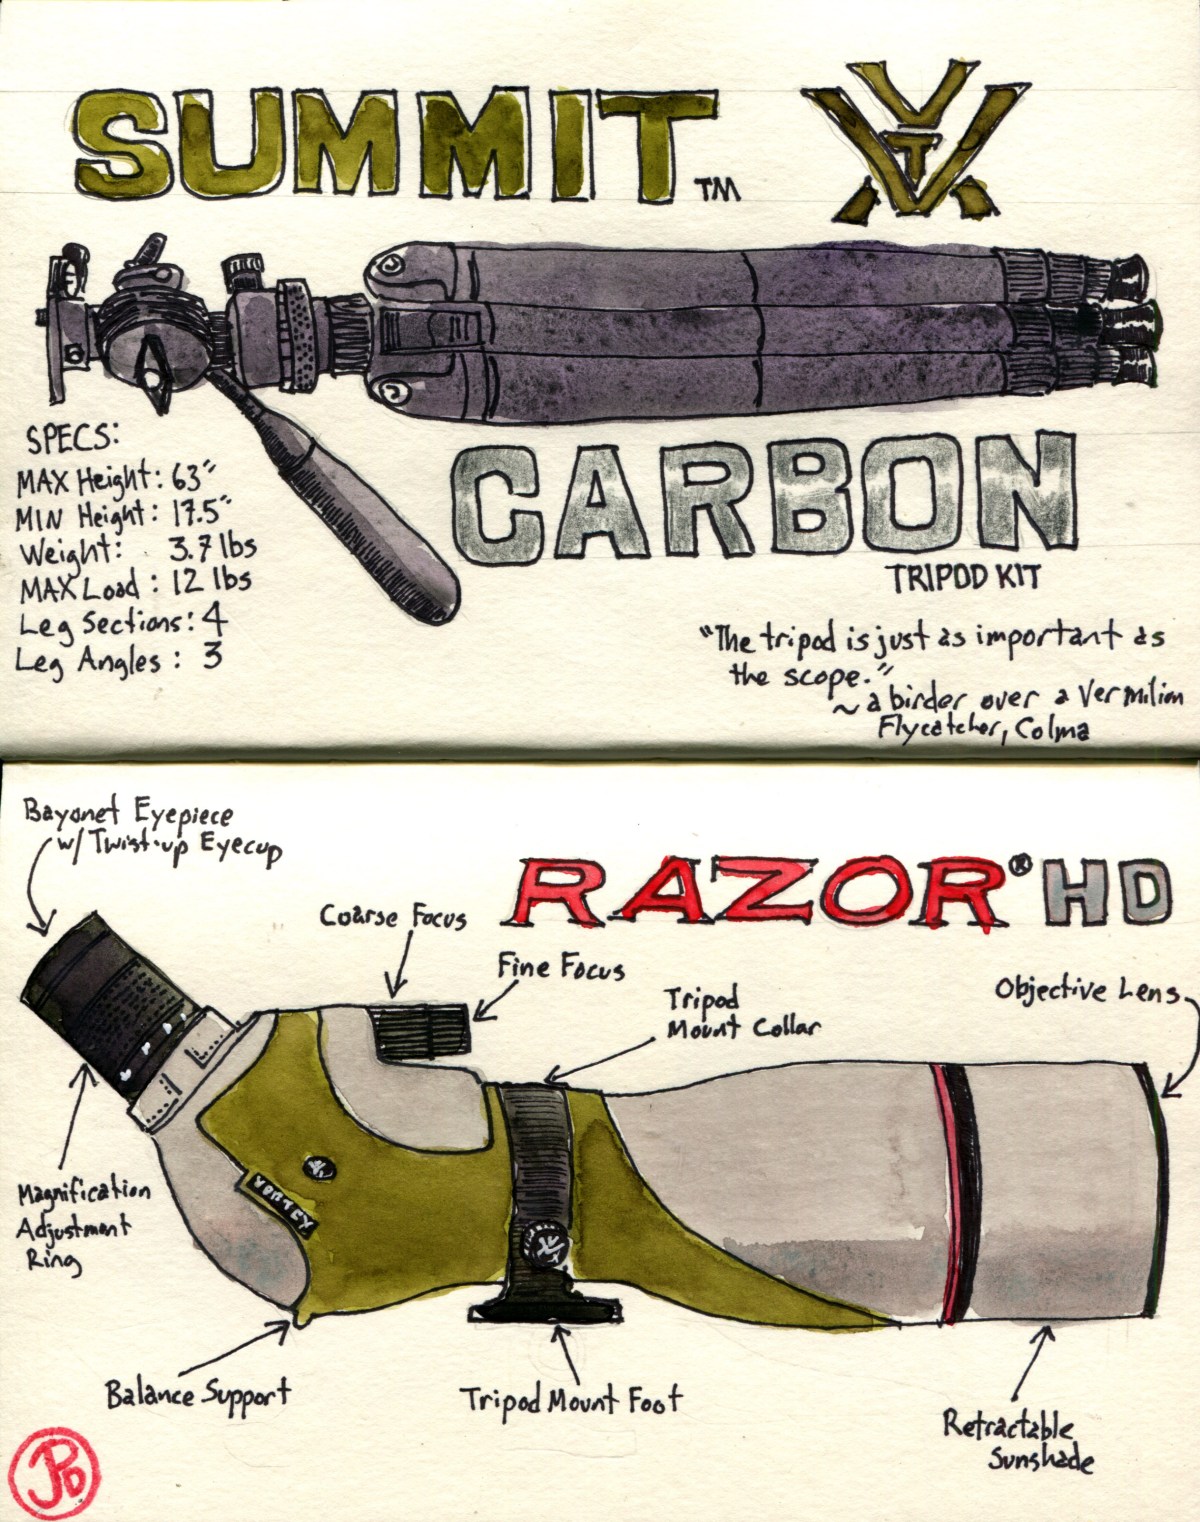 SUMMIT TM
VT
SPECS:
MAX Height: 63"
MIN Height: 17.5"
Weight: 3.7 lbs
MAX Load: 12 lbs
Leg Sections: 4
Leg Angles: 3
CARBON
TRIPOD KIT
"The tripod is just as important as
the scope."
~ a birder over a Vermilion
Flycatcher, Colma
Bayonet Eyepiece
w/ Twist-up Eyecup
RAZOR® HD
Coarse Focus
Fine Focus
Tripod
Mount Collar
Objective Lens
Magnification
Adjustment
Ring
VORTEX
Balance Support
Tripod Mount Foot
Retractable
Sunshade
JPD